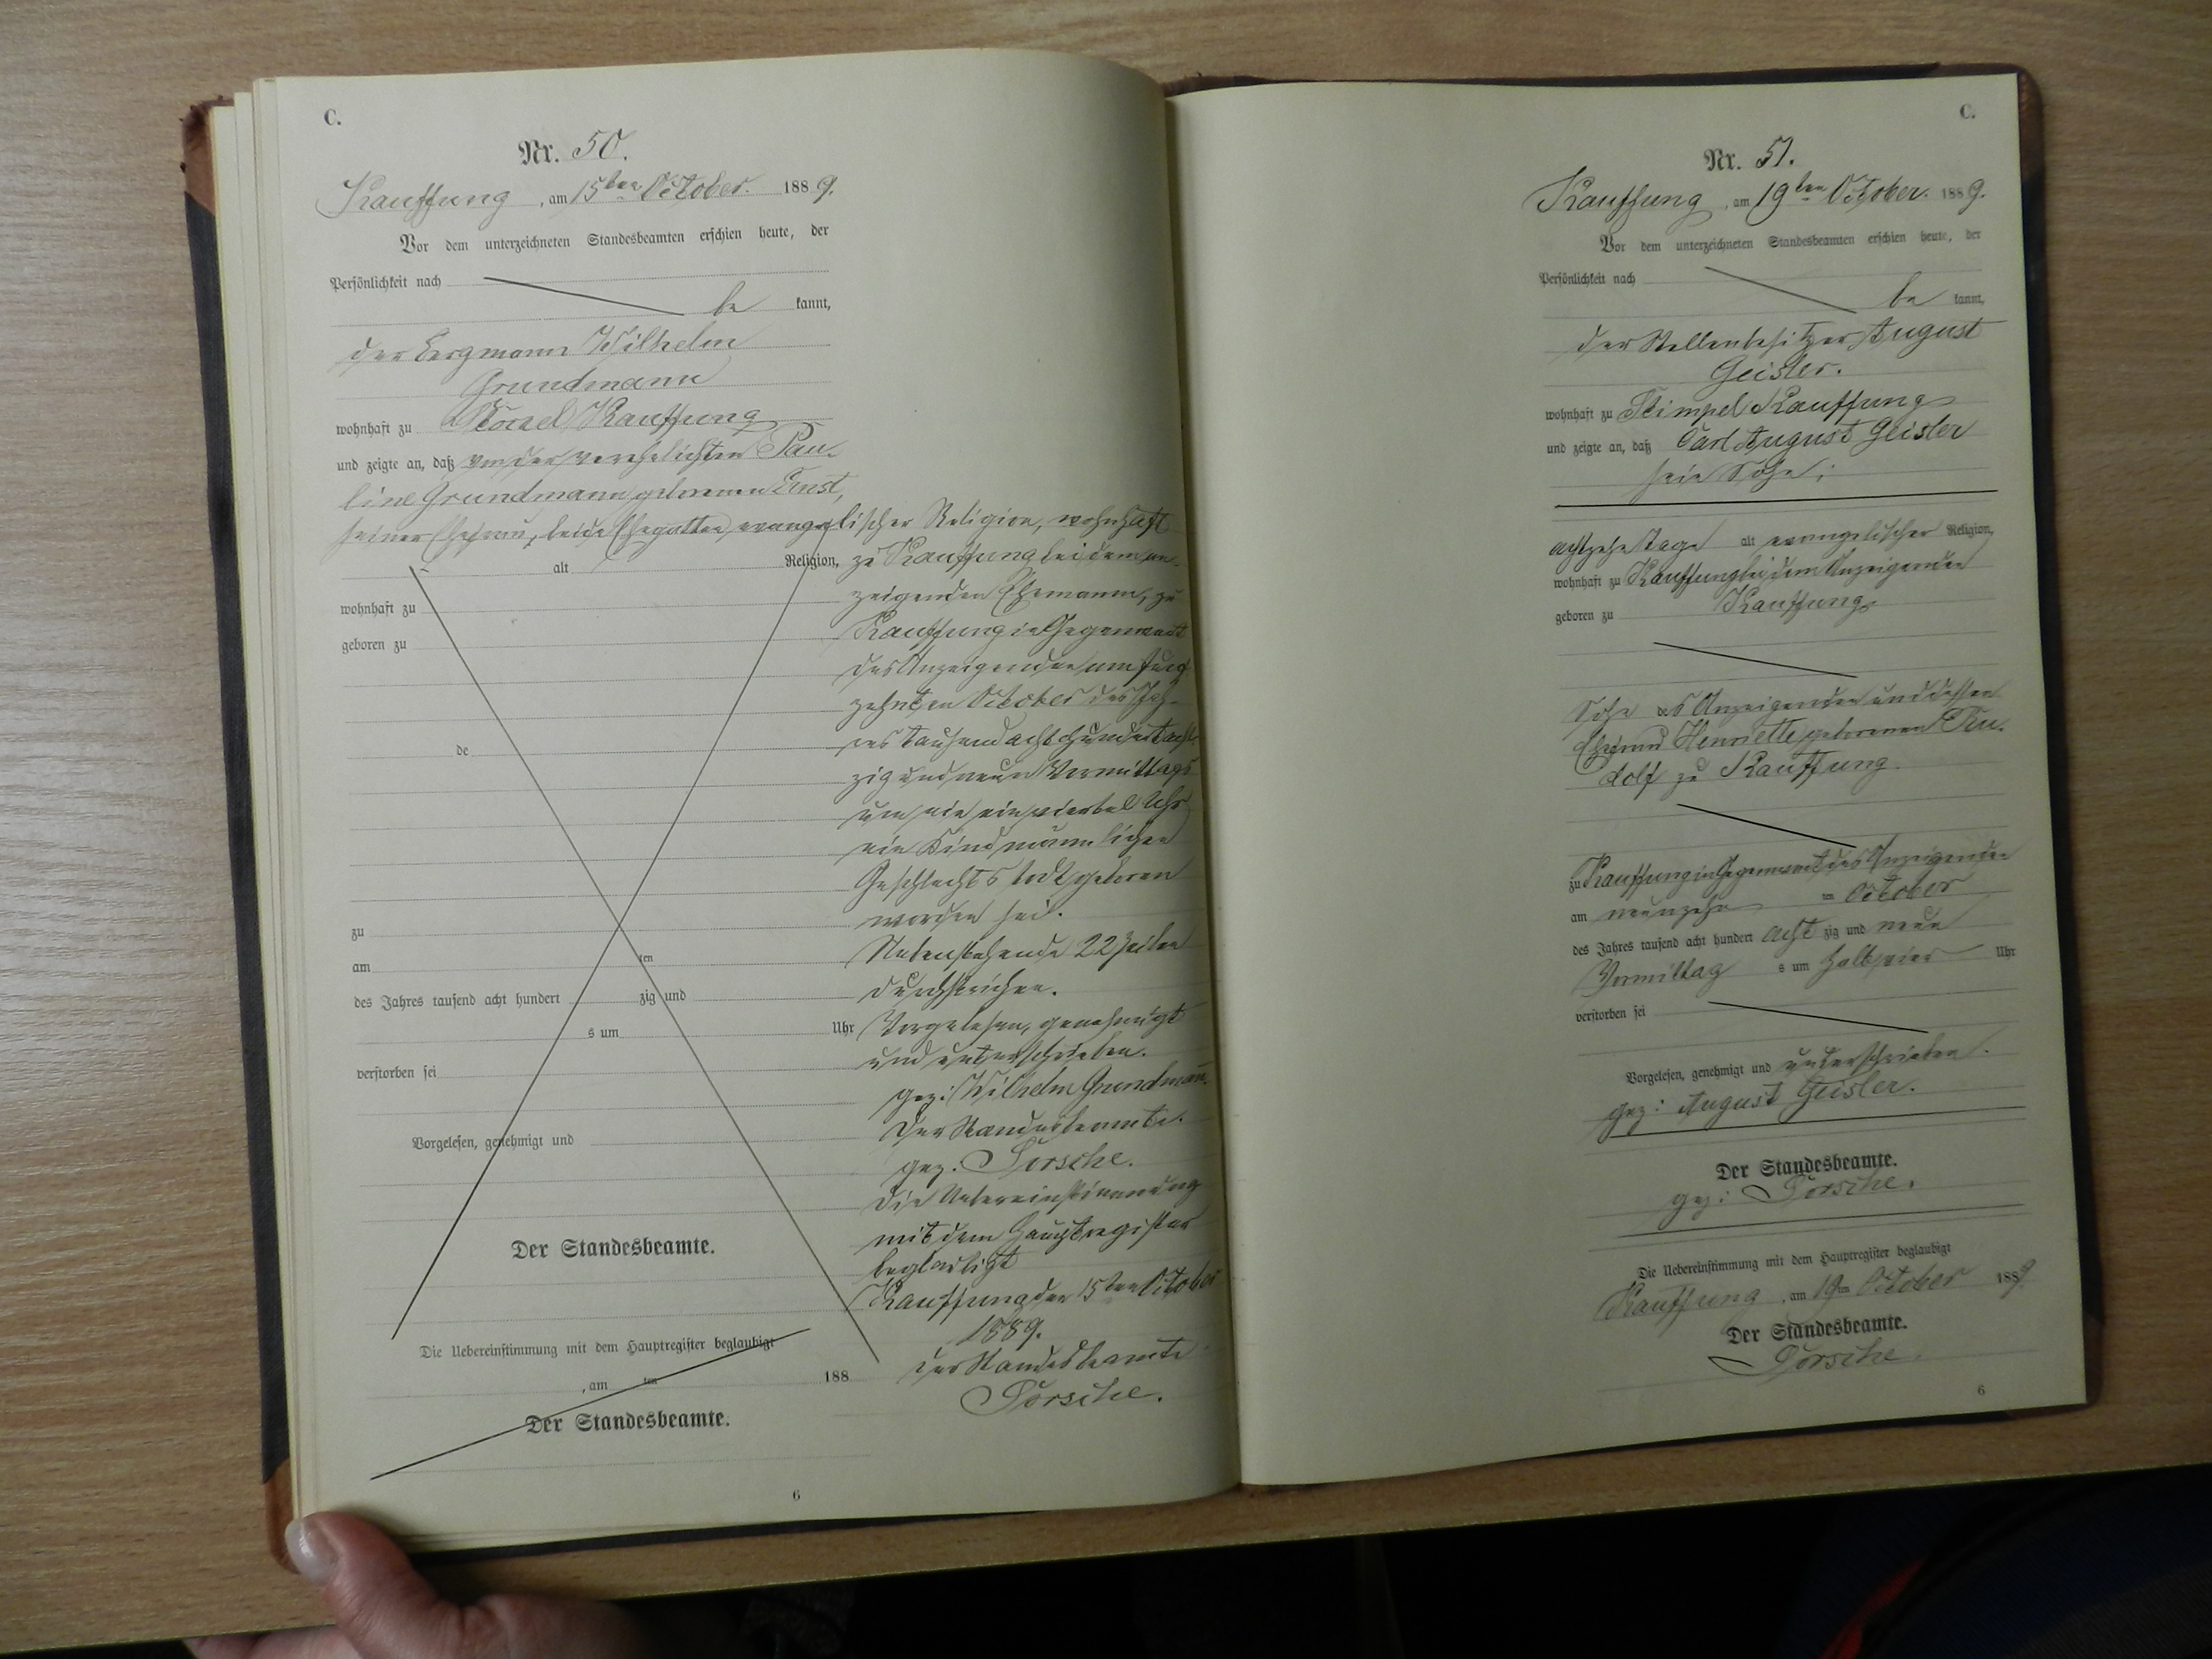 C.
Nr. 50.
Kauffung, am 15ten October. 1889.
Vor dem unterzeichneten Standesbeamten erschien heute, der
Persönlichkeit nach
be kannt,
der Bergmann Wilhelm
Grundmann
wohnhaft zu Kauffung
und zeigte an, daß von der verehelichten Pau-
line Grundmann geborenen Ernst,
seiner Ehefrau, beide Ehegatten evangelischer Religion, wohnhaft
alt Religion, zu Kauffung bei dem an-
wohnhaft zu zeigenden Ehemanne, zu
geboren zu Kauffung in Gegenwart
des Anzeigenden am fünf-
zehnten October des Jah-
de res tausend acht hundert acht-
zig und neun Vormittags
um ein ein viertel Uhr
ein Kind männlichen
Geschlechts todt geboren
zu worden sei.
am ten Nebenstehende 22 Zeilen
des Jahres tausend acht hundert zig und durchstrichen.
s um Uhr Vorgelesen, genehmigt
verstorben sei und unterschrieben.
gez: Wilhelm Grundmann.
Vorgelesen, genehmigt und Der Standesbeamte.
gez. Porsche.
Die Uebereinstimmung
Der Standesbeamte. mit dem Hauptregister
beglaubigt
Kauffung den 15ten October
1889.
Die Uebereinstimmung mit dem Hauptregister beglaubigt
, am ten 188 der Standesbeamte.
Der Standesbeamte. Porsche.
6
C.
Nr. 51.
Kauffung, am 19ten October. 1889.
Vor dem unterzeichneten Standesbeamten erschien heute, der
Persönlichkeit nach
be kannt,
der Stellenbesitzer August
Geisler.
wohnhaft zu Kauffung
und zeigte an, daß Carl August Geisler
sein Sohn;
achtzehn Tage alt evangelischer Religion,
wohnhaft zu Kauffung bei dem Anzeigenden
geboren zu Kauffung
Sohn des Anzeigenden und dessen
Ehefrau Henriette geborenen Ru-
dolf zu Kauffung.
zu Kauffung in Gegenwart des Anzeigenden
am neunzehn ten October
des Jahres tausend acht hundert acht zig und neun
Vormittag s um halb vier Uhr
verstorben sei
Vorgelesen, genehmigt und unterschrieben.
gez: August Geisler.
Der Standesbeamte.
gez: Porsche.
Die Uebereinstimmung mit dem Hauptregister beglaubigt
Kauffung, am 19ten October 1889
Der Standesbeamte.
Porsche.
6